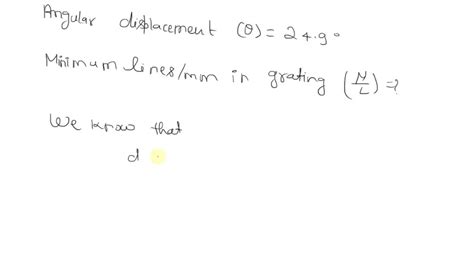 Angular displacement (θ) = 24.9°
Minimum lines/mm in grating (N/L) = ?
We know that
d